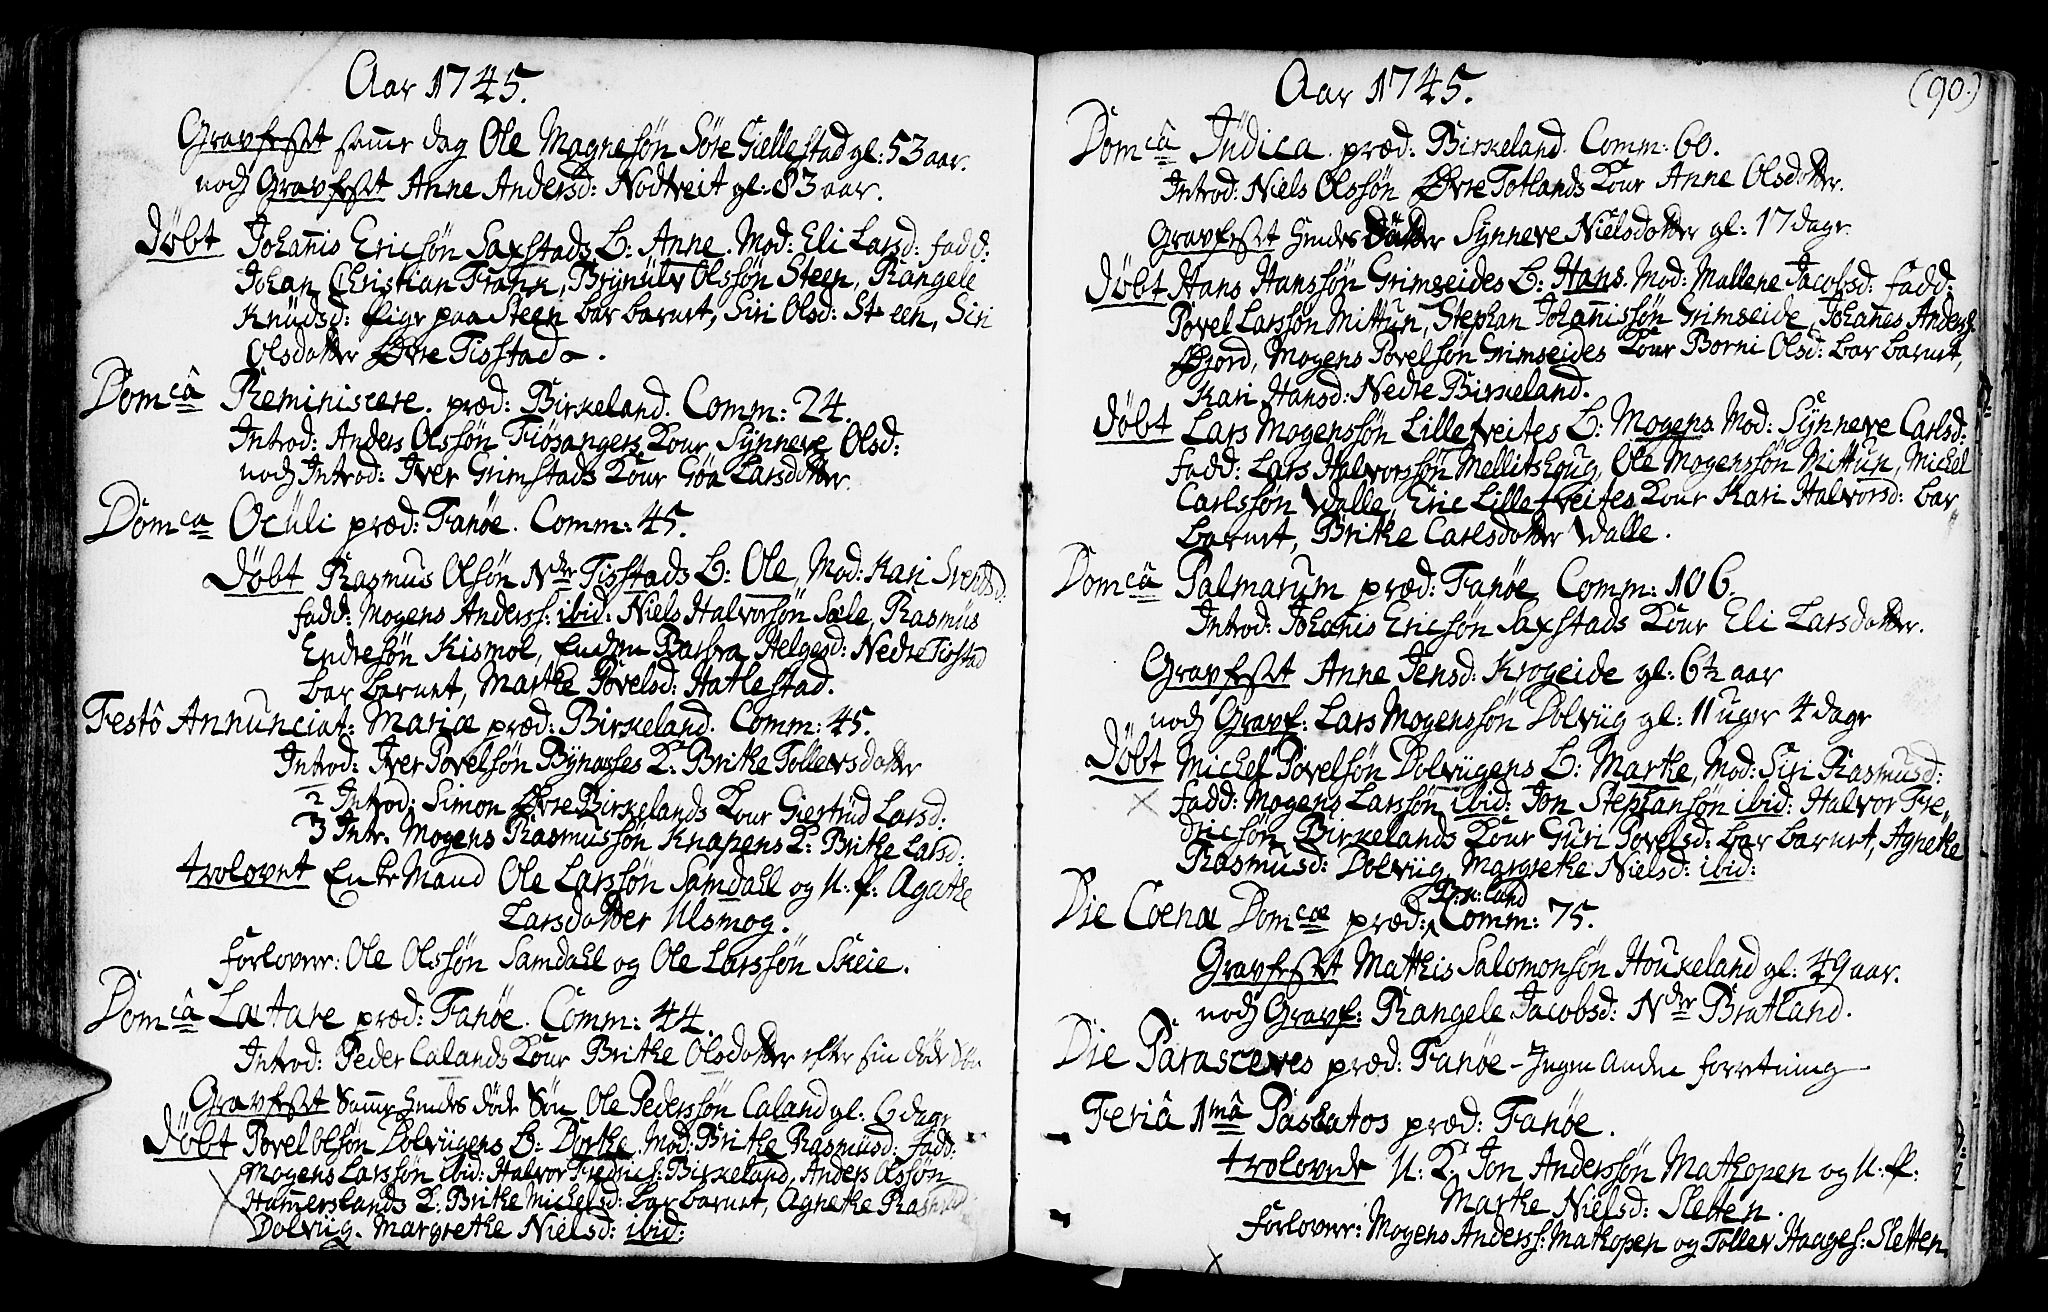 Aar 1745.
Gravfæstet samme dag Ole Magnesøn Søre Giellestad gl: 53 aar.
noch Gravfæstet Anne Andersd: Nodtveit gl: 83 aar.
Døbt Johannis Ericsøn Saxstads B: Anne. Mod: Eli Larsd: fadd:
Johan Christian Frann, Brynülv Olssøn Steen, Rangele
Knüdsd: Pige paa Steen bar barnet, Siri Olsd: Steen, Siri
Olsdatter Øvre Tisstad.
Domcâ Reminiscere. præd: Birkeland. Comm: 24.
Introd: Anders Olssøn Fiøsangers Kone Synneve Olsd:
noch Introd: Iver Grimstads Kone Göa Larsdatter.
Domca Ocüli præd: Fanøe. Comm: 45.
Døbt Rasmus Olsøn Ndre Tisstads B: Ole, Mod: Kari Svendsd:
fadd: Mogens Anderss: ibid: Niels Halvorsøn Sæle, Rasmüs
Endresøn Kismol, Barbra Helgesd: Nedre Tisstad
bar barnet, Marthe Povelsd: Hatlestad.
Festô Annunciat: Mariæ præd: Birkeland. Comm: 45.
Introd: Iver Povelsøn Bynæsses K: Brithe Tollevsdatter
2 Introd: Simon Øvre Birkelands Kone Giertrüd Larsd:
3 Intr. Mogens Rasmussøn Knapens K: Brithe Larsd:
trolovet Enke Mand Ole Larssøn Samdahl og U. P: Agathe
Larsdatter Ulsmog.
Forlover: Ole Olssøn Samdahl og Ole Larssøn Skeie.
Domcâ Lætare præd: Fanøe. Comm: 44.
Introd: Peder Calands Kone Brithe Olsdatter efter sin døde Søn
Gravfæstet Samme hendes døde Søn Ole Pederssøn Caland gl: 6 dage
Døbt Povel Olsøn Dolvügens B: Dorthe. Mod: Brithe Rasmüsd: fadd:
Mogens Larssøn ibid: Halvor Fredrics: Birkeland, Anders Olssøn
Hammerslands K: Brithe Michelsd: bar barnet, Agnethe Rasmüsd:
Dolvüg. Margrethe Nielsd: ibid:
Aar 1745.
(90.)
Domcâ Jüdica. præd: Birkeland. Comm: 60.
Introd: Niels Olssøn Øvre Totlands Kone Anne Olsdatter.
Gravfæstet hendes Datter Synneve Nielsdatter gl: 17 dage.
Døbt Hans Hanssøn Grimseides B: Hans. Mod: Mallene Jacobsd: fadd:
Povel Larssøn Mittun, Stephan Johannissøn Grimseide, Johannes Anders:
Øjord, Mogens Povelsøn Grimseides Kone Borni Olsd: bar barnet,
Kari Hansd: Nedre Birkeland.
Døbt Lars Mogenssøn Lilletveites B: Mogens. Mod: Synneve Carlsd:
fadd: Lars Halvorssøn Mellitshoug, Ole Mogenssøn Mittun, Michel
Carlssøn Walle, Eric Lilletveites Kone Kari Halvorsd: bar
barnet, Brithe Carlsdatter Walle.
Domcâ Palmarum præd: Fanøe Comm: 106.
Introd: Johanis Ericsøn Saxstads Kone Eli Larsdatter.
Gravfæstet Anne Jensd: Krogeide gl: 6½ aar
noch Gravf: Lars Mogenssøn Dolvüg gl: 11 uger 4 dage
Døbt Michel Povelsøn Dolvügens B: Marthe, Mod: Siri Rasmusd:
fadd: Mogens Larssøn ibid: Jon Stephansøn ibid: Halvor Fre,
dricsøn Birkelands Kone Guri Povelsd: bar barnet, Agnethe
Rasmusd: Dolvüg, Margrethe Nielsd: ibid:
Die Coenæ Domcæ præd: Birkeland Comm: 75.
Gravfæstet Mathis Salomonsøn Houkeland gl: 49 aar.
noch Gravf: Rangele Jacobsd: Ndre Bratland.
Die Parasceves præd: Fanøe - Ingen Anden forretning
Feriâ 1mâ Paschatos præd: Fanøe.
trolovede U. K: Jon Anderssøn Mathopen og U. P:
Marthe Nielsd: Sletten.
Forlover: Mogens Anderss: Mathopen og Tollev Haages: Sletten.